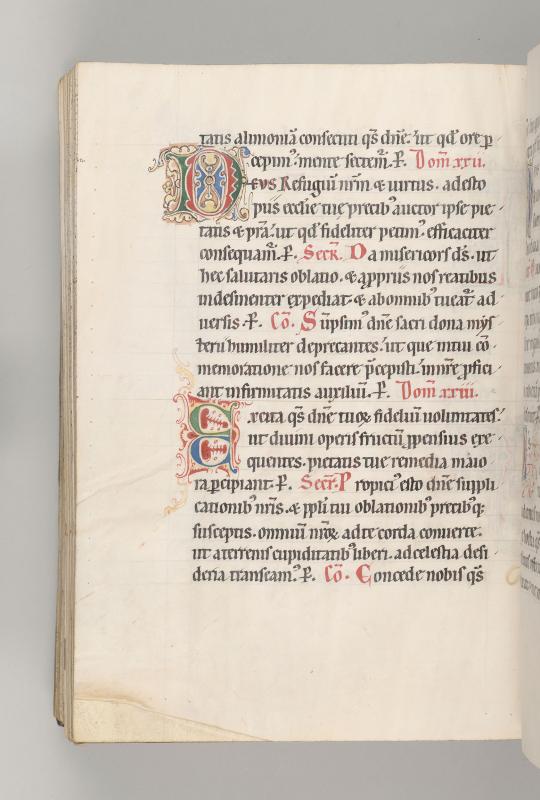 tatis alimoniā consecuti q̄s dn̄e. ut qd̛ ore ꝑ
cepim᷒. mente sectem̄. P̄. Dom̄ xxii.
Deus Refugiū nr̄m ⁊ uirtus. adesto
piis eccl̄ie tue precib᷒ auctor ipse pie
tatis ⁊ p̄sta. ut qd̛ fideliter petim᷒. efficaciter
consequam̄. P̄. Secr̄. Da misericors ds̄. ut
hec salutaris oblatio. ⁊ a ꝓpriis nos reatibus
indesinenter expediat. ⁊ ab omnib᷒ tueat᷑ ad
uersis. P̄. Cō. Sūpsim᷒ dn̄e sacri dona mys
terii humiliter deprecantes. ut que in tui cō
memoratione nos facere p̄cepisti. in nr̄e ꝓfici
ant infirmitatis auxiliū. P̄. Dom̄ xxiii.
Excita q̄s dn̄e tuoꝝ fideliū uoluntates.
ut diuini operis fructū ꝓpensius exe
quentes. pietatis tue remedia maio
ra ꝑcipiant. P̄. Secr̄. Propici᷒ esto dn̄e suppli
cationib᷒ nr̄is. ⁊ pp̄li tui oblationib᷒ precib᷒q;
susceptis. omniū nr̄oꝝ ad te corda conuerte.
ut a terrenis cupiditatib᷒ liberi. ad celestia desi
deria transeam᷒. P̄. Cō. Concede nobis q̄s